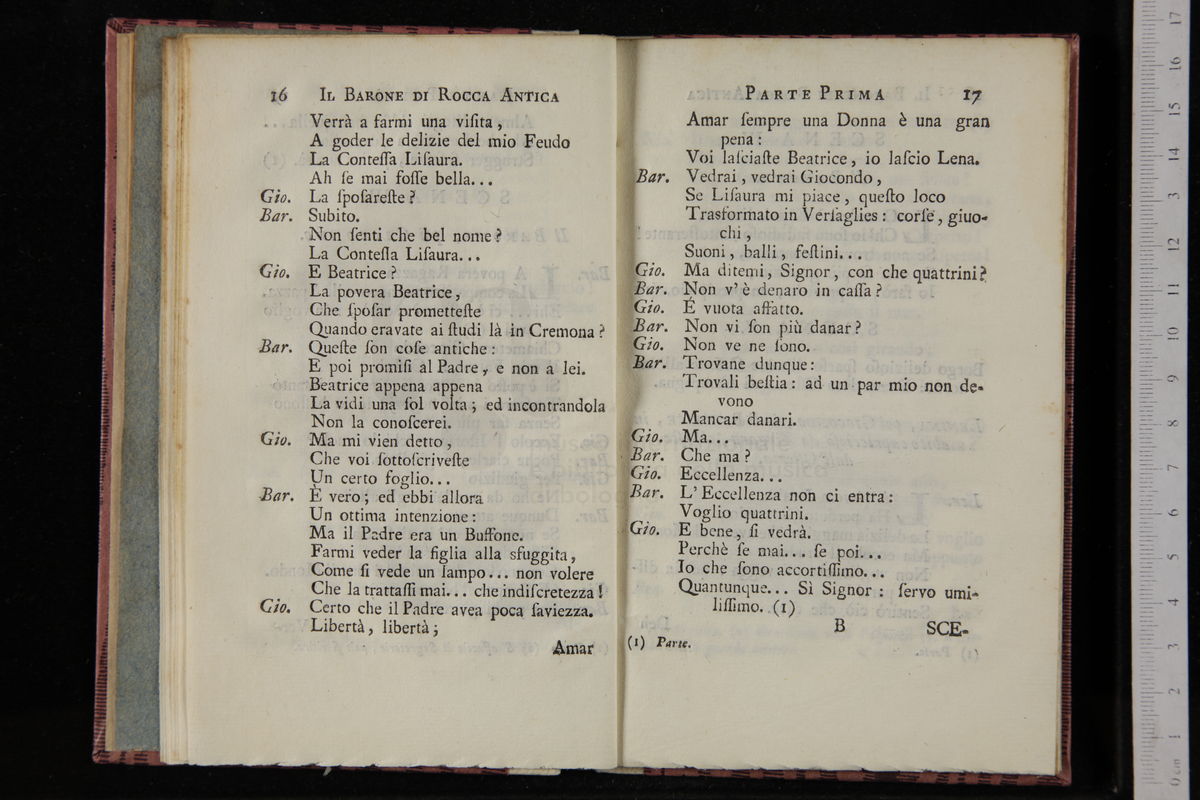 16 IL BARONE DI ROCCA ANTICA
Verrà a farmi una viſita,
A goder le delizie del mio Feudo
La Conteſſa Liſaura.
Ah ſe mai foſſe bella...
Gio. La ſpoſareſte?
Bar. Subito.
Non ſenti che bel nome?
La Conteſſa Liſaura...
Gio. E Beatrice?
La povera Beatrice,
Che ſpoſar prometteſte
Quando eravate ai ſtudi là in Cremona?
Bar. Queſte ſon coſe antiche:
E poi promiſi al Padre, e non a lei.
Beatrice appena appena
La vidi una ſol volta; ed incontrandola
Non la conoſcerei.
Gio. Ma mi vien detto,
Che voi ſottoſcriveſte
Un certo foglio...
Bar. È vero; ed ebbi allora
Un ottima intenzione:
Ma il Padre era un Buffone.
Farmi veder la figlia alla sfuggita,
Come ſi vede un lampo... non volere
Che la trattaſſi mai... che indiſcretezza!
Gio. Certo che il Padre avea poca ſaviezza.
Libertà, libertà;
Amar
PARTE PRIMA 17
Amar ſempre una Donna è una gran
pena:
Voi laſciaſte Beatrice, io laſcio Lena.
Bar. Vedrai, vedrai Giocondo,
Se Liſaura mi piace, queſto loco
Trasformato in Verſaglies: corſe, giuo-
chi,
Suoni, balli, feſtini...
Gio. Ma ditemi, Signor, con che quattrini?
Bar. Non v'è denaro in caſſa?
Gio. É vuota affatto.
Bar. Non vi ſon più danar?
Gio. Non ve ne ſono.
Bar. Trovane dunque:
Trovali beſtia: ad un par mio non de-
vono
Mancar danari.
Gio. Ma...
Bar. Che ma?
Gio. Eccellenza...
Bar. L'Eccellenza non ci entra:
Voglio quattrini.
Gio. E bene, ſi vedrà.
Perchè ſe mai... ſe poi...
Io che ſono accortiſſimo...
Quantunque... Sì Signor: ſervo umi-
liſſimo. (1)
B SCE-
(1) Parte.